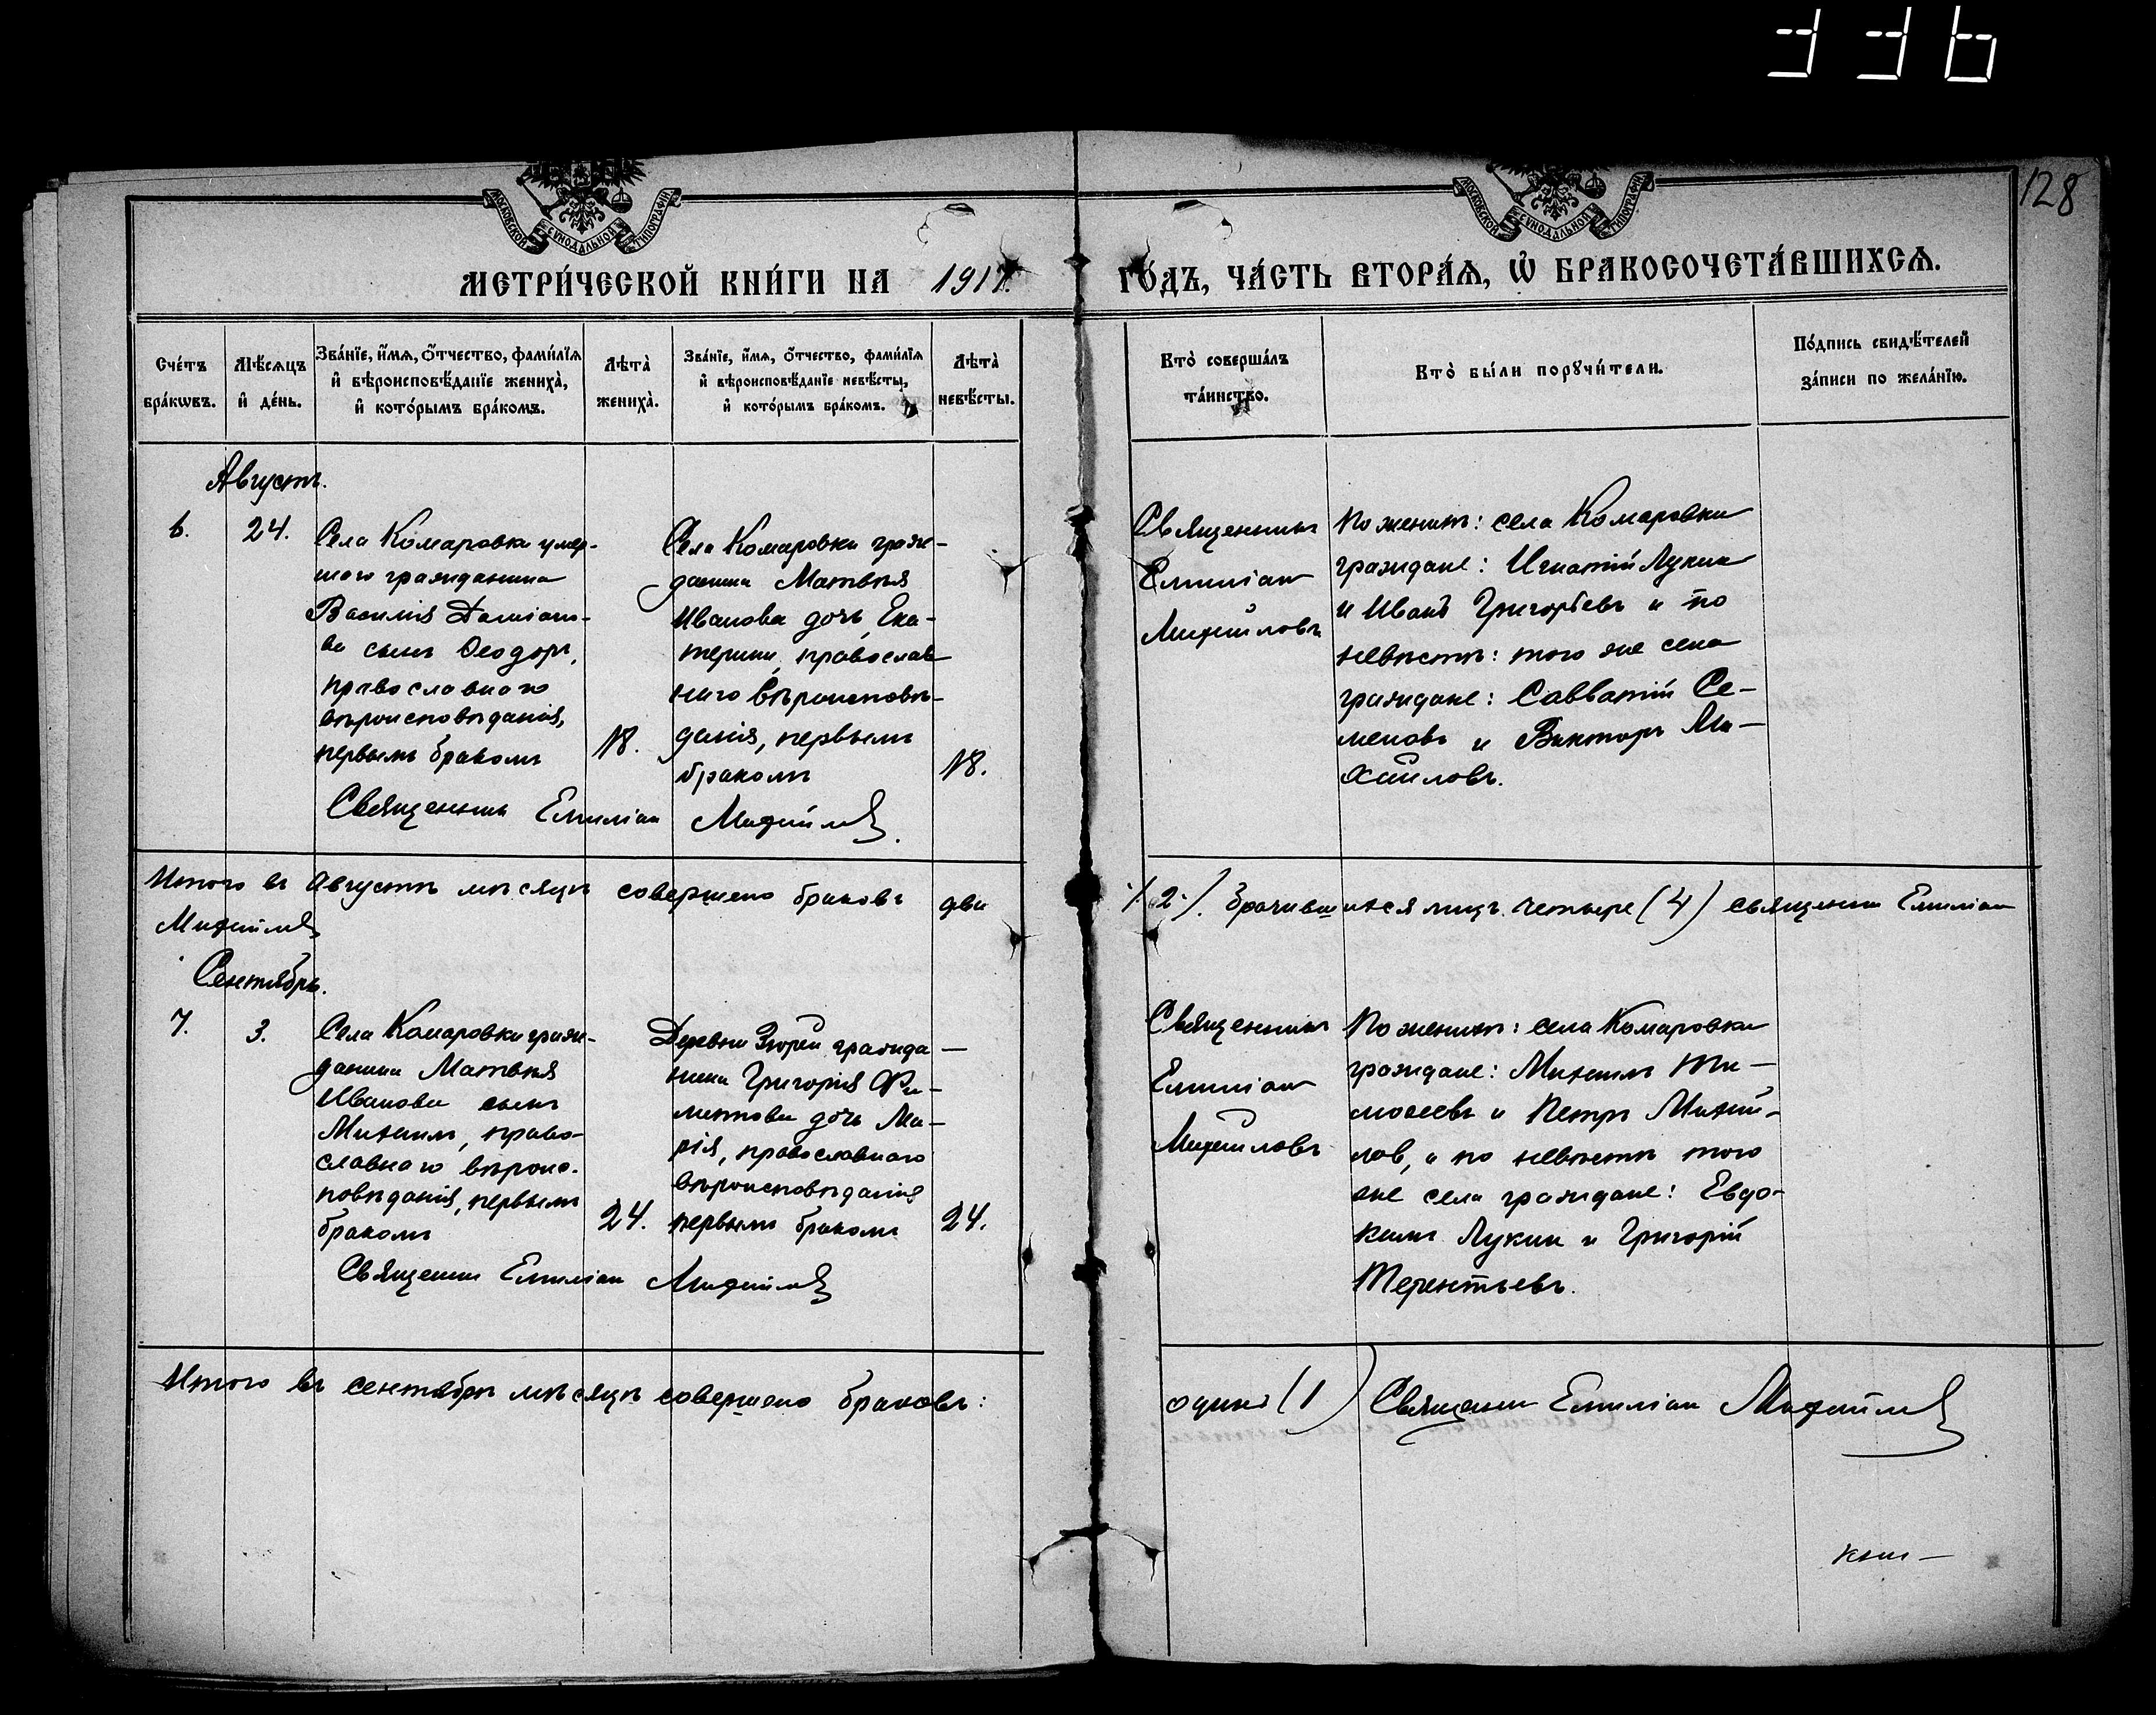 336
128
МОСКОВСКОЙ СѴНОДАЛЬНОЙ ТИПОГРАФІИ
МОСКОВСКОЙ СѴНОДАЛЬНОЙ ТИПОГРАФІИ
МЕТРИ́ЧЕСКОЙ КНИ́ГИ НА 1917. ГО́ДЪ, ЧА́СТЬ ВТОРА́Ѧ, Ѽ БРАКОСОЧЕТА́ВШИХСѦ.
Сче́тъ
бра́кѡвъ.
Мѣ́сѧцъ
и҆ де́нь.
Зва́нїе, и҆́мѧ, ѻ҆́тчество, фами́лїѧ
и҆ вѣроисповѣ́данїе жениха̀,
и҆ кото́рымъ бра́комъ.
Лѣта̀
жениха̀.
Зва́нїе, и҆́мѧ, ѻ҆́тчество, фами́лїѧ
и҆ вѣроисповѣ́данїе невѣ́сты,
и҆ кото́рымъ бра́комъ.
Лѣта̀
невѣ́сты.
Кто̀ соверша́лъ
та́инство.
Кто̀ бы́ли порꙋчи́тели.
По́дпись свидѣ́телей
за́писи по жела́нїю.
Августъ.
6.
24.
Села Комаровки умер-
шаго гражданина
Василія Даміано-
ва сынъ Ѳеодоръ,
православнаго
вѣроисповѣданія,
первымъ бракомъ
18.
Села Комаровки граж-
данина Матвѣя
Иванова дочь Ека-
терина, православ
наго вѣроисповѣ-
данія, первымъ
бракомъ
18.
Священникъ Емиліан Михайловъ.
Священникъ
Емиліан
Михайловъ
По женихѣ: села Комаровки
граждане: Игнатій Лукин
и Иванъ Григорьевъ и по
невѣстѣ: того же села
граждане: Савватій Се-
меновъ и Викторъ Ми-
хайловъ.
Итого въ Августѣ мѣсяцѣ совершено браковъ два ./.2./. брачившихся лицъ четыре (4) священник Емиліан
Михайловъ
Сентябрь.
7.
3.
Села Комаровки граж-
данина Матвѣя
Иванова сынъ
Михаилъ, право-
славнаго вѣроис-
повѣданія, первымъ
бракомъ
24.
Деревни гражда-
нина Григорія Фи-
липпова дочь Ма-
рія, православнаго
вѣроисповѣданія
первымъ бракомъ
24.
Священник Емиліан Михайловъ
Священникъ
Емиліан
Михайловъ
По женихѣ: села Комаровки
граждане: Михаилъ Ти-
моѳеевъ и Петръ Михай-
лов, и по невѣстѣ того
же села граждане: Евдо-
кимъ Лукин и Григорій
Терентьевъ.
Итого въ сентябрѣ мѣсяцѣ совершено браковъ: одинъ (1) Священник Емиліан Михайловъ